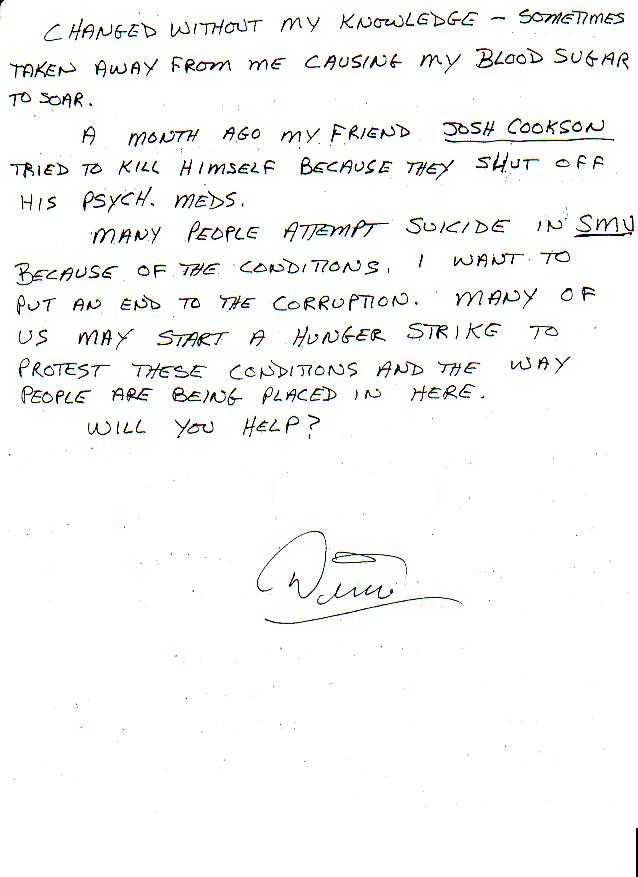 CHANGED WITHOUT MY KNOWLEDGE - SOMETIMES
TAKEN AWAY FROM ME CAUSING MY BLOOD SUGAR
TO SOAR.
A MONTH AGO MY FRIEND JOSH COOKSON
TRIED TO KILL HIMSELF BECAUSE THEY SHUT OFF
HIS PSYCH. MEDS.
MANY PEOPLE ATTEMPT SUICIDE IN SMU
BECAUSE OF THE CONDITIONS. I WANT TO
PUT AN END TO THE CORRUPTION. MANY OF
US MAY START A HUNGER STRIKE TO
PROTEST THESE CONDITIONS AND THE WAY
PEOPLE ARE BEING PLACED IN HERE.
WILL YOU HELP?